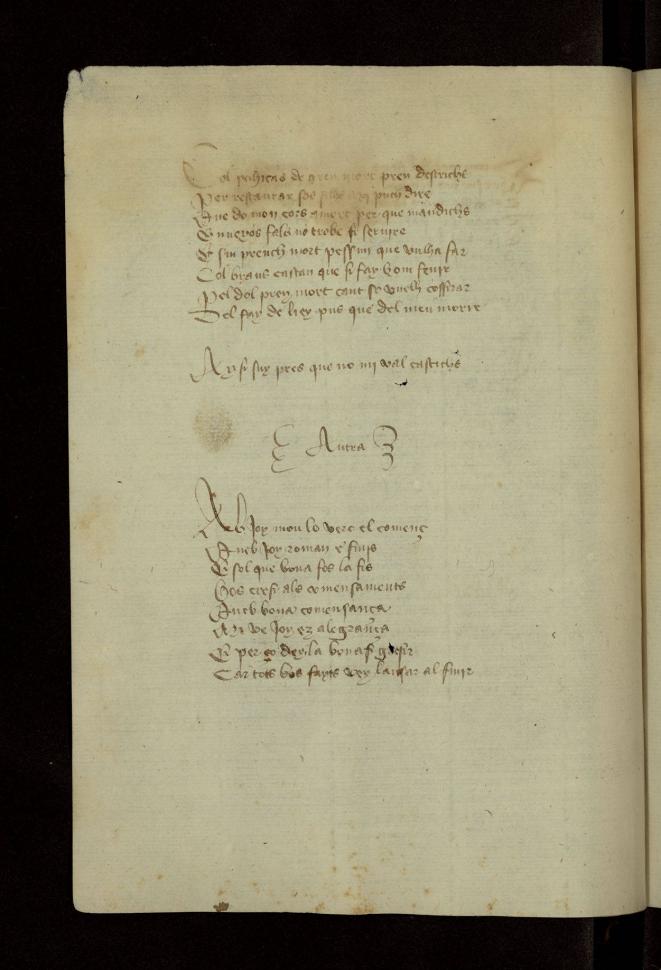 Col pelicas de greu mort pren destrichs
Per restaurar sos fills axi puch dire
Que do mon cors a mort per que maudichs
E nueyos fals no trobe si servire
E si u prench mort pessau que vulha far
Col braus castan que si fay hom fenir
Pel dol prey mort cant se vuelh cossirar
Del fay de liey pus que del meu morir
Ay si suy pres que no mi val castichs
Autra
Ab Joy mou lo vers el començ
Aueb Joy roman e finis
E sol que bona fos la fis
Bos cresi als comensaments
Aueb bona comensança
Mi ve Joy ez alegrança
E per ço dey la bona fi grasir
Car tots bos fayts vey lausar al finir